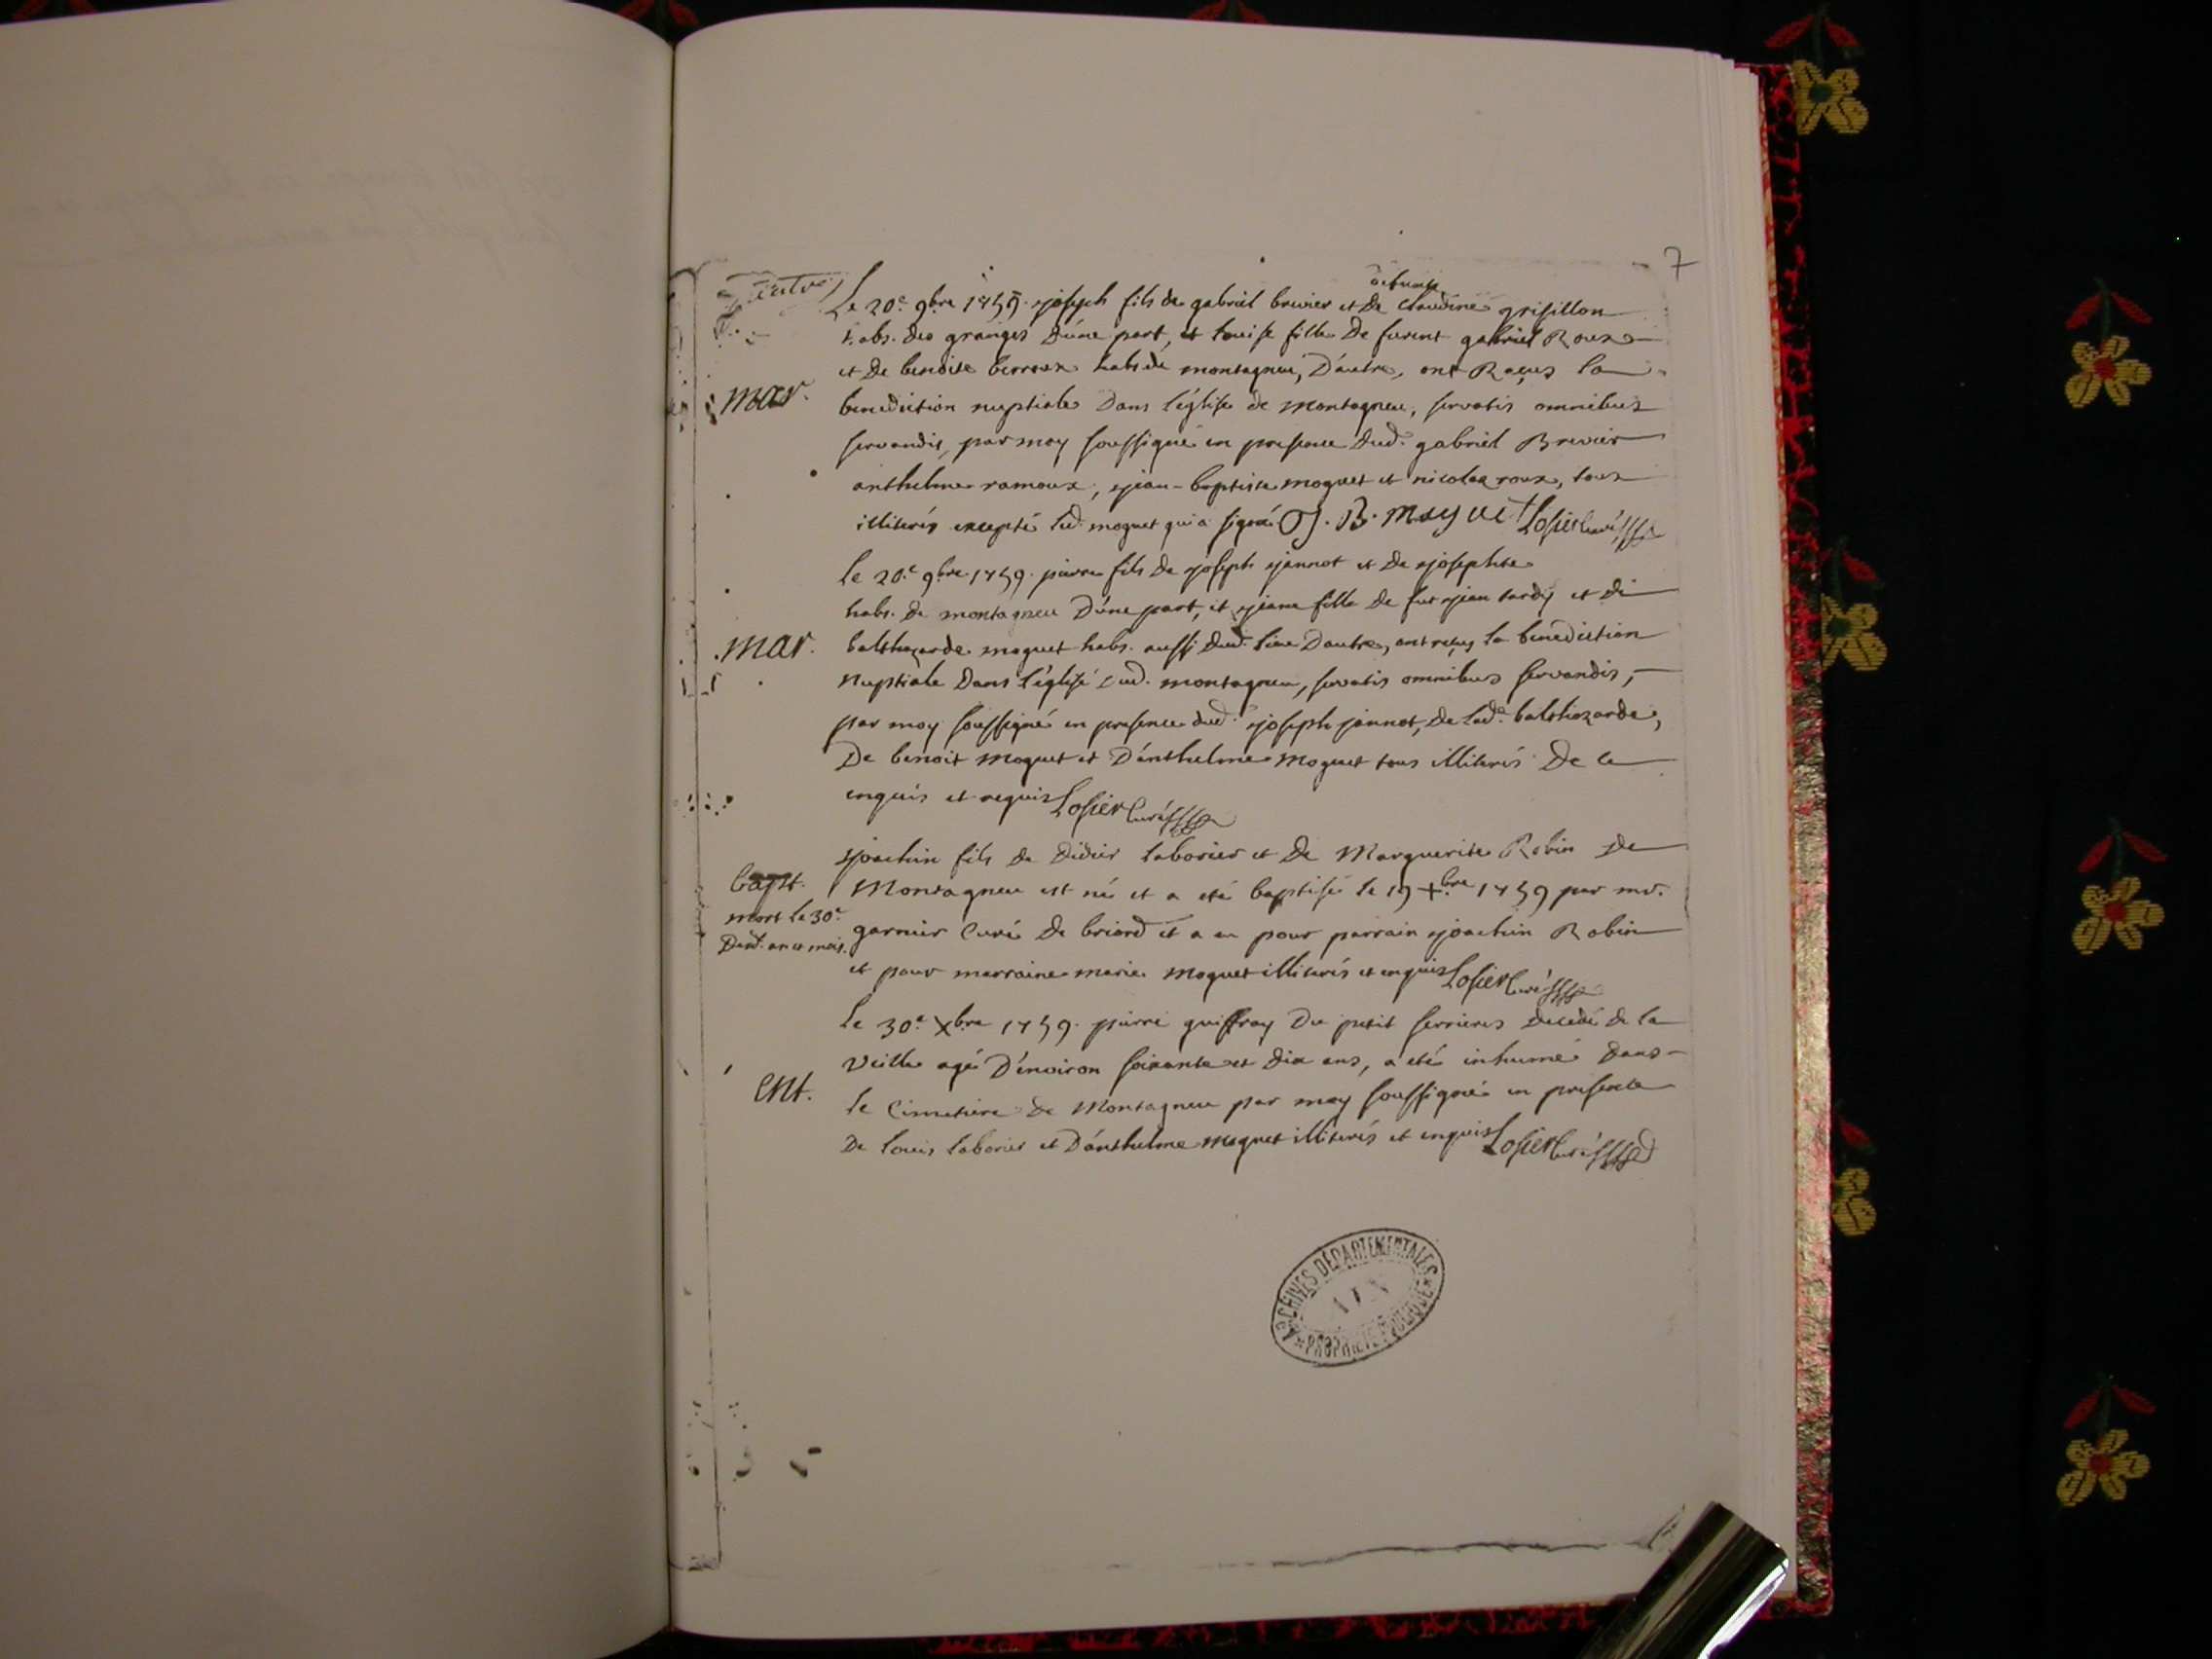 7
defunte
Le 20.e 9bre 1759. joseph fils de gabriel brevier et de claudine grisillon
habs. des granges d'une part, et louise fille de furent gabriel Roux
et de benoite berroux habs de montagneu, d'autre, ont Reçus la
mar.
benediction nuptiale dans l'église de montagneu, servatis omnibus
servandis, par moy soussigné en presence dud. gabriel Brevier
anthelme ramoux, jean-baptiste moguet et nicolas roux, tous
illiterés excepté led. moguet qui a signé J. B. moguet Losier Curé
le 20.e 9bre 1759. pierre fils de joseph jannot et de josephte
habs. de montagneu d'une part, et jeane fille de fut jean tardy et de
mar.
balthazarde moguet habs. aussi dud. lieu d'autre, ont reçus la benediction
nuptiale dans l'église dud. montagneu, servatis omnibus servandis,
par moy soussigné en presence dud. joseph jannot, de lad.e balthazarde,
de benoit moguet et d'anthelme moguet tous illiterés de ce
enquis et requis Losier Curé
joachin fils de didier laborier et de Marguerite Robin de
bapt.
Montagneu est né et a eté baptisé le 19 Xbre 1759 par mr.
mort le 30e
dud. an et mois.
garnier Curé de briord et a eu pour parrain joachin Robin
et pour marraine marie moguet illiterés et enquis Losier Curé
Le 30.e Xbre 1759. pierre guiffray du petit serrieres decedé de la
veille agé d'environ soixante et dix ans, a eté inhumé dans
ent.
le Cimetiere de Montagneu par moy soussigné en presence
de louis laborier et d'anthelme moguet illiterés et enquis Losier Curé
ARCHIVES DÉPARTEMENTALES
AIN
PROPRIÉTÉ PUBLIQUE